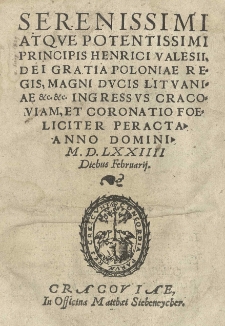 SERENISSIMI
ATQVE POTENTISSIMI
PRINCIPIS HENRICI VALESII,
DEI GRATIA POLONIAE RE-
GIS, MAGNI DVCIS LITVANI-
AE &c. &c. INGRESSVS CRACO-
VIAM, ET CORONATIO FOE-
LICITER PERACTA
ANNO DOMINI
M. D. LXXIIII
Diebus Februarij.
CRACOVIAE,
In Officina Matthæi Siebeneycher.